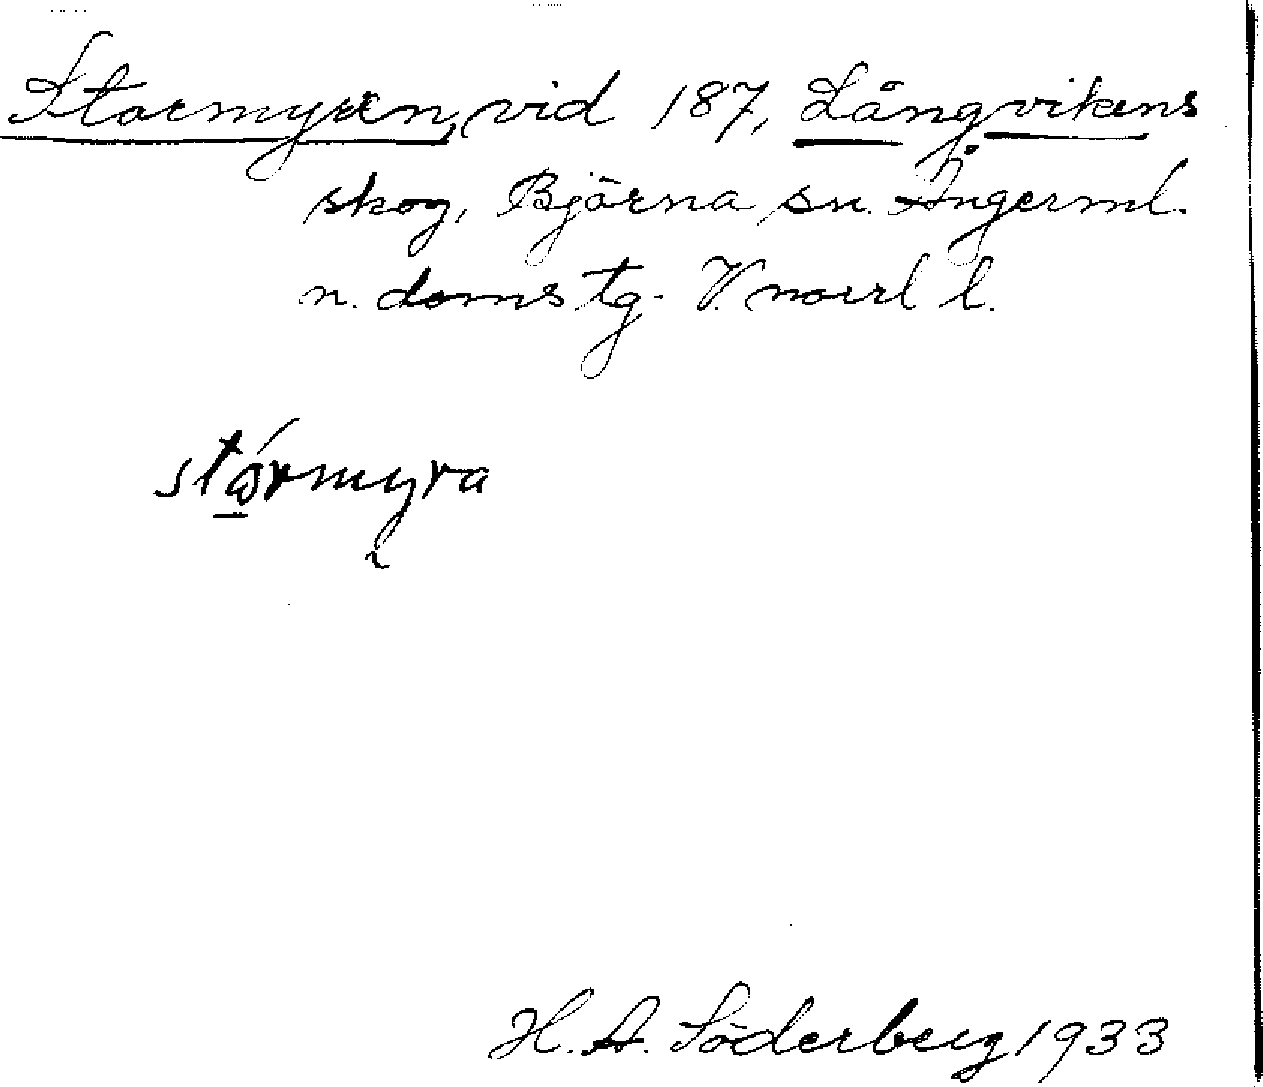 Stormyren, vid 187, Långvikens
skog, Björna sn. Ångerml.
n. doms tg. V. norrl l.
stórmyra
H. A. Söderberg 1933